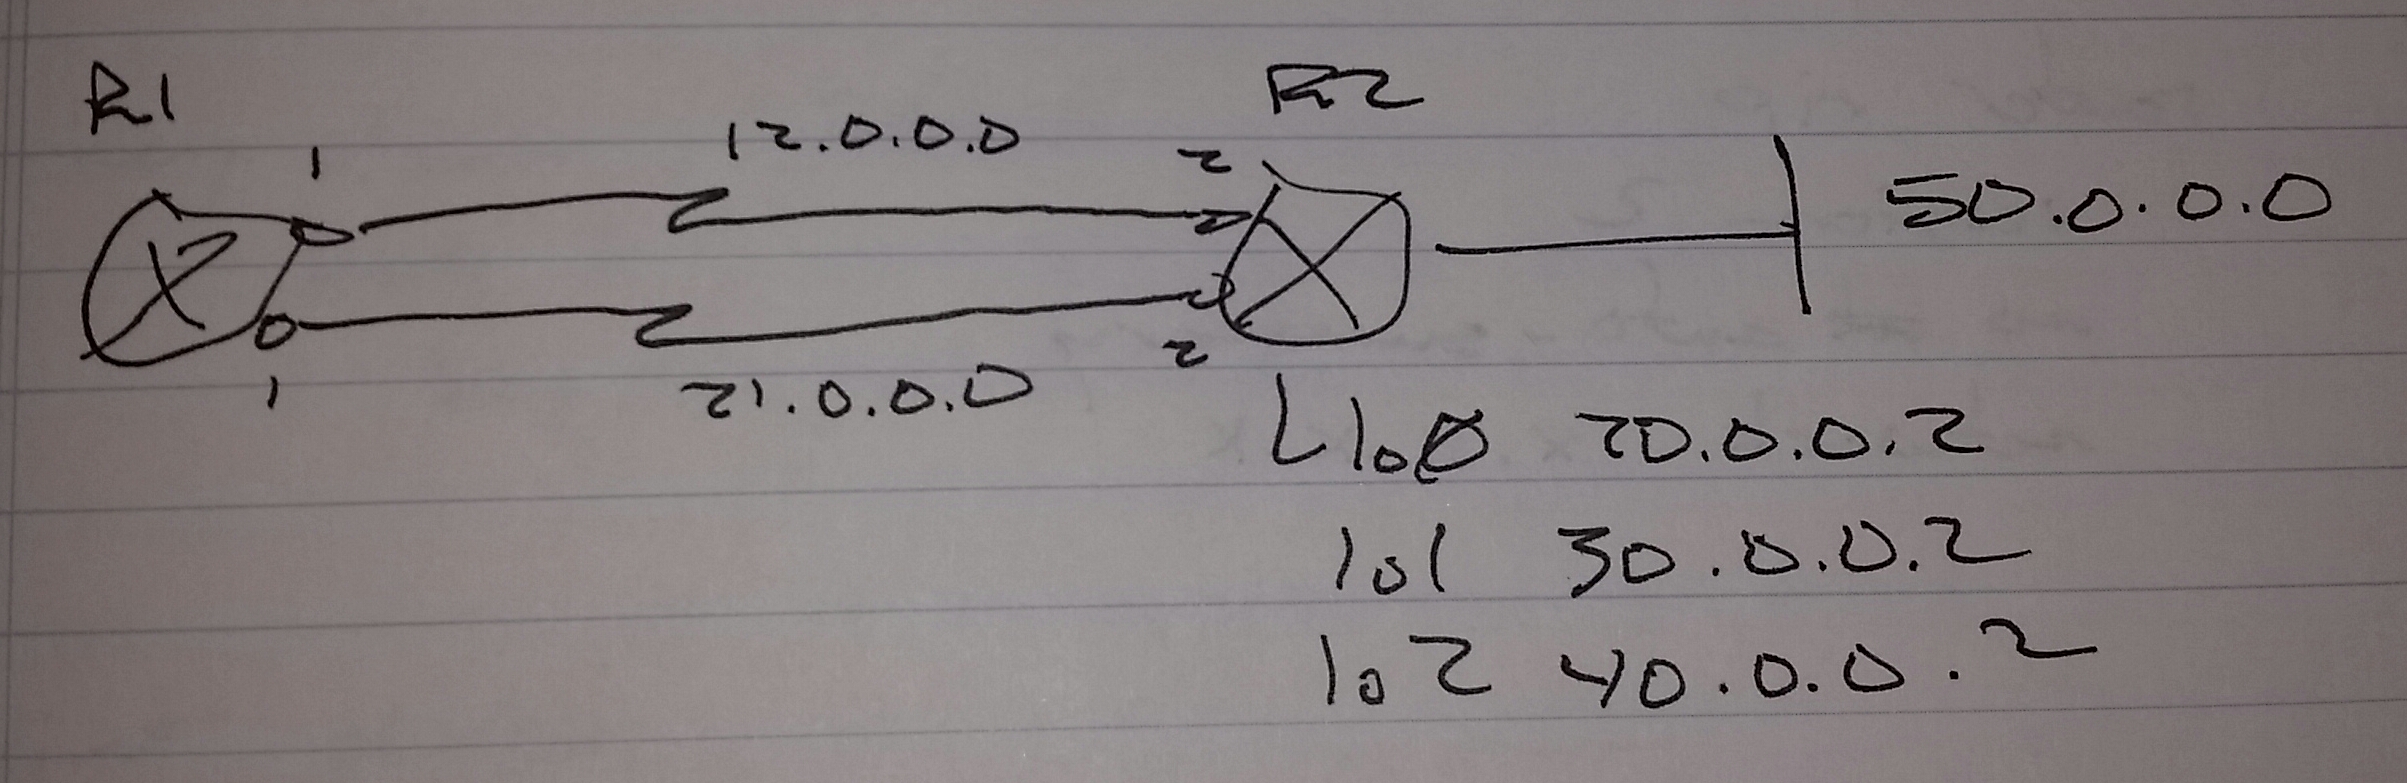 R1
R2
1
12.0.0.0
2
50.0.0.0
1
21.0.0.0
2
lo0 20.0.0.2
lo1 30.0.0.2
lo2 40.0.0.2